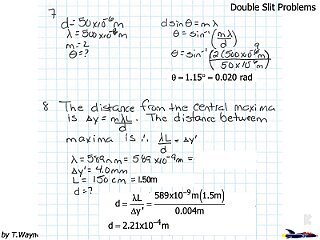 Double Slit Problems
7
d = 50×10⁻⁶ m
λ = 500×10⁻⁹ m
m = 2
θ = ?
d sin θ = mλ
θ = sin⁻¹ (mλ/d)
θ = sin⁻¹ (2(500×10⁻⁹ m)/50×10⁻⁶ m)
θ = 1.15° = 0.020 rad
8 The distance from the central maxima
is Δy = mλL/d. The distance between
maxima is ∴ λL/d = Δy'
λ = 589 nm = 589 ×10⁻⁹ m =
Δy' = 4.0mm
L = 150 cm = 1.50m
d = ?
d = λL/Δy' = 589x10⁻⁹m(1.5m)/0.004m
d = 2.21x10⁻⁴m
by T.Wayne